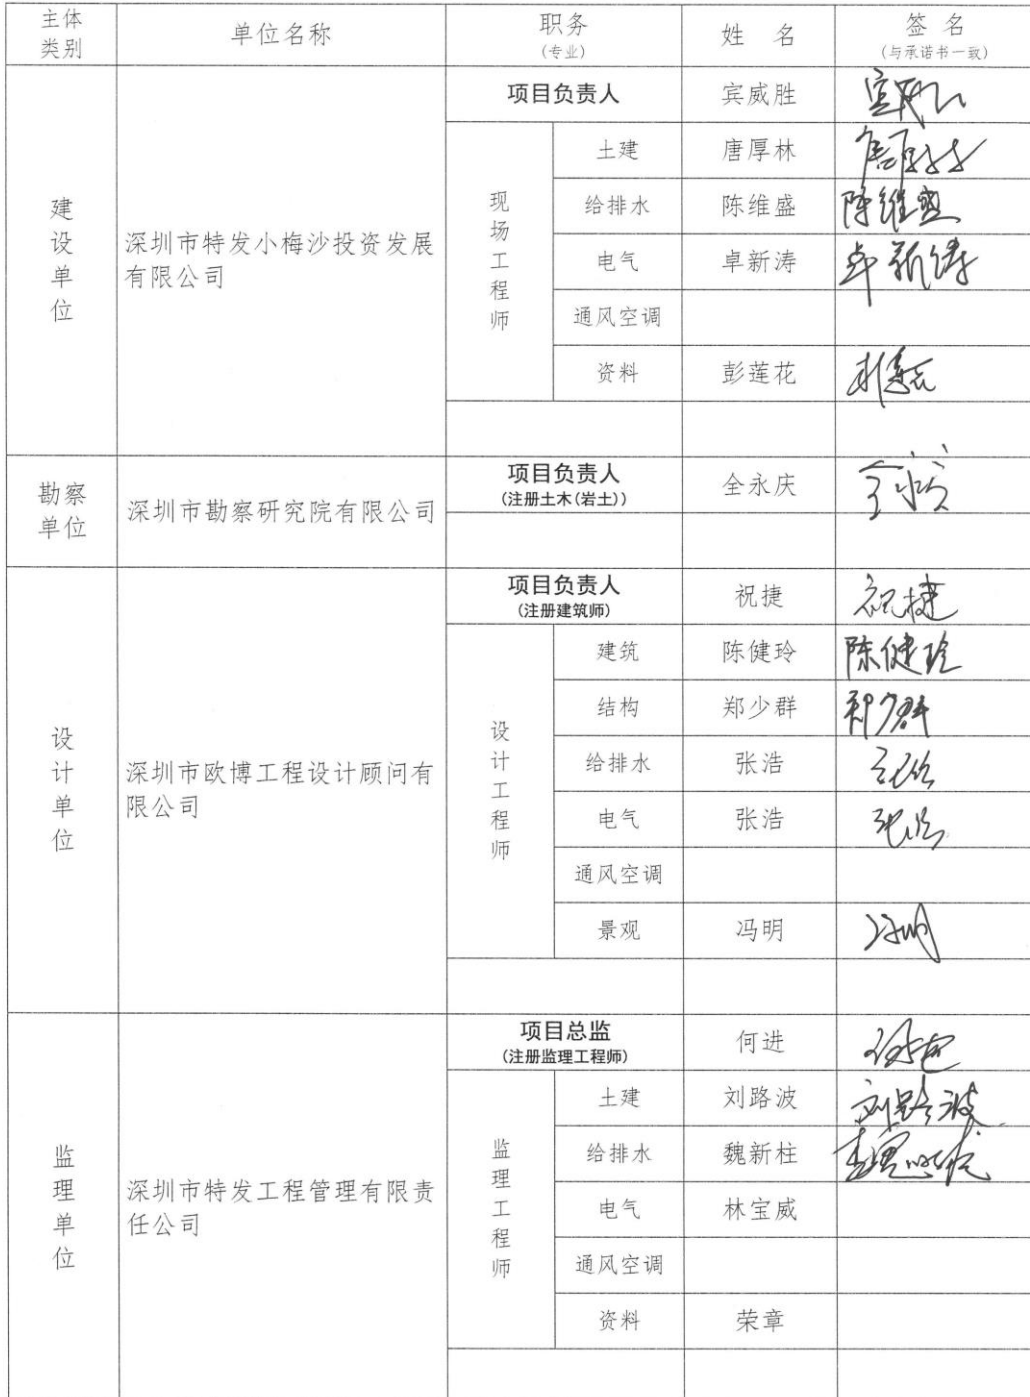 主体类别 单位名称 职务(专业) 姓 名 签 名(与承诺书一致)
建设单位 深圳市特发小梅沙投资发展有限公司
项目负责人 宾威胜
现场工程师
土建 唐厚林
给排水 陈维盛 陈维盛
电气 卓新涛 卓新涛
通风空调
资料 彭莲花
勘察单位 深圳市勘察研究院有限公司
项目负责人(注册土木(岩土)) 全永庆
设计单位 深圳市欧博工程设计顾问有限公司
项目负责人(注册建筑师) 祝捷 祝捷
设计工程师
建筑 陈健玲 陈健玲
结构 郑少群 郑少群
给排水 张浩
电气 张浩
通风空调
景观 冯明 冯明
监理单位 深圳市特发工程管理有限责任公司
项目总监(注册监理工程师) 何进
监理工程师
土建 刘路波 刘路波
给排水 魏新柱
电气 林宝威
通风空调
资料 荣章